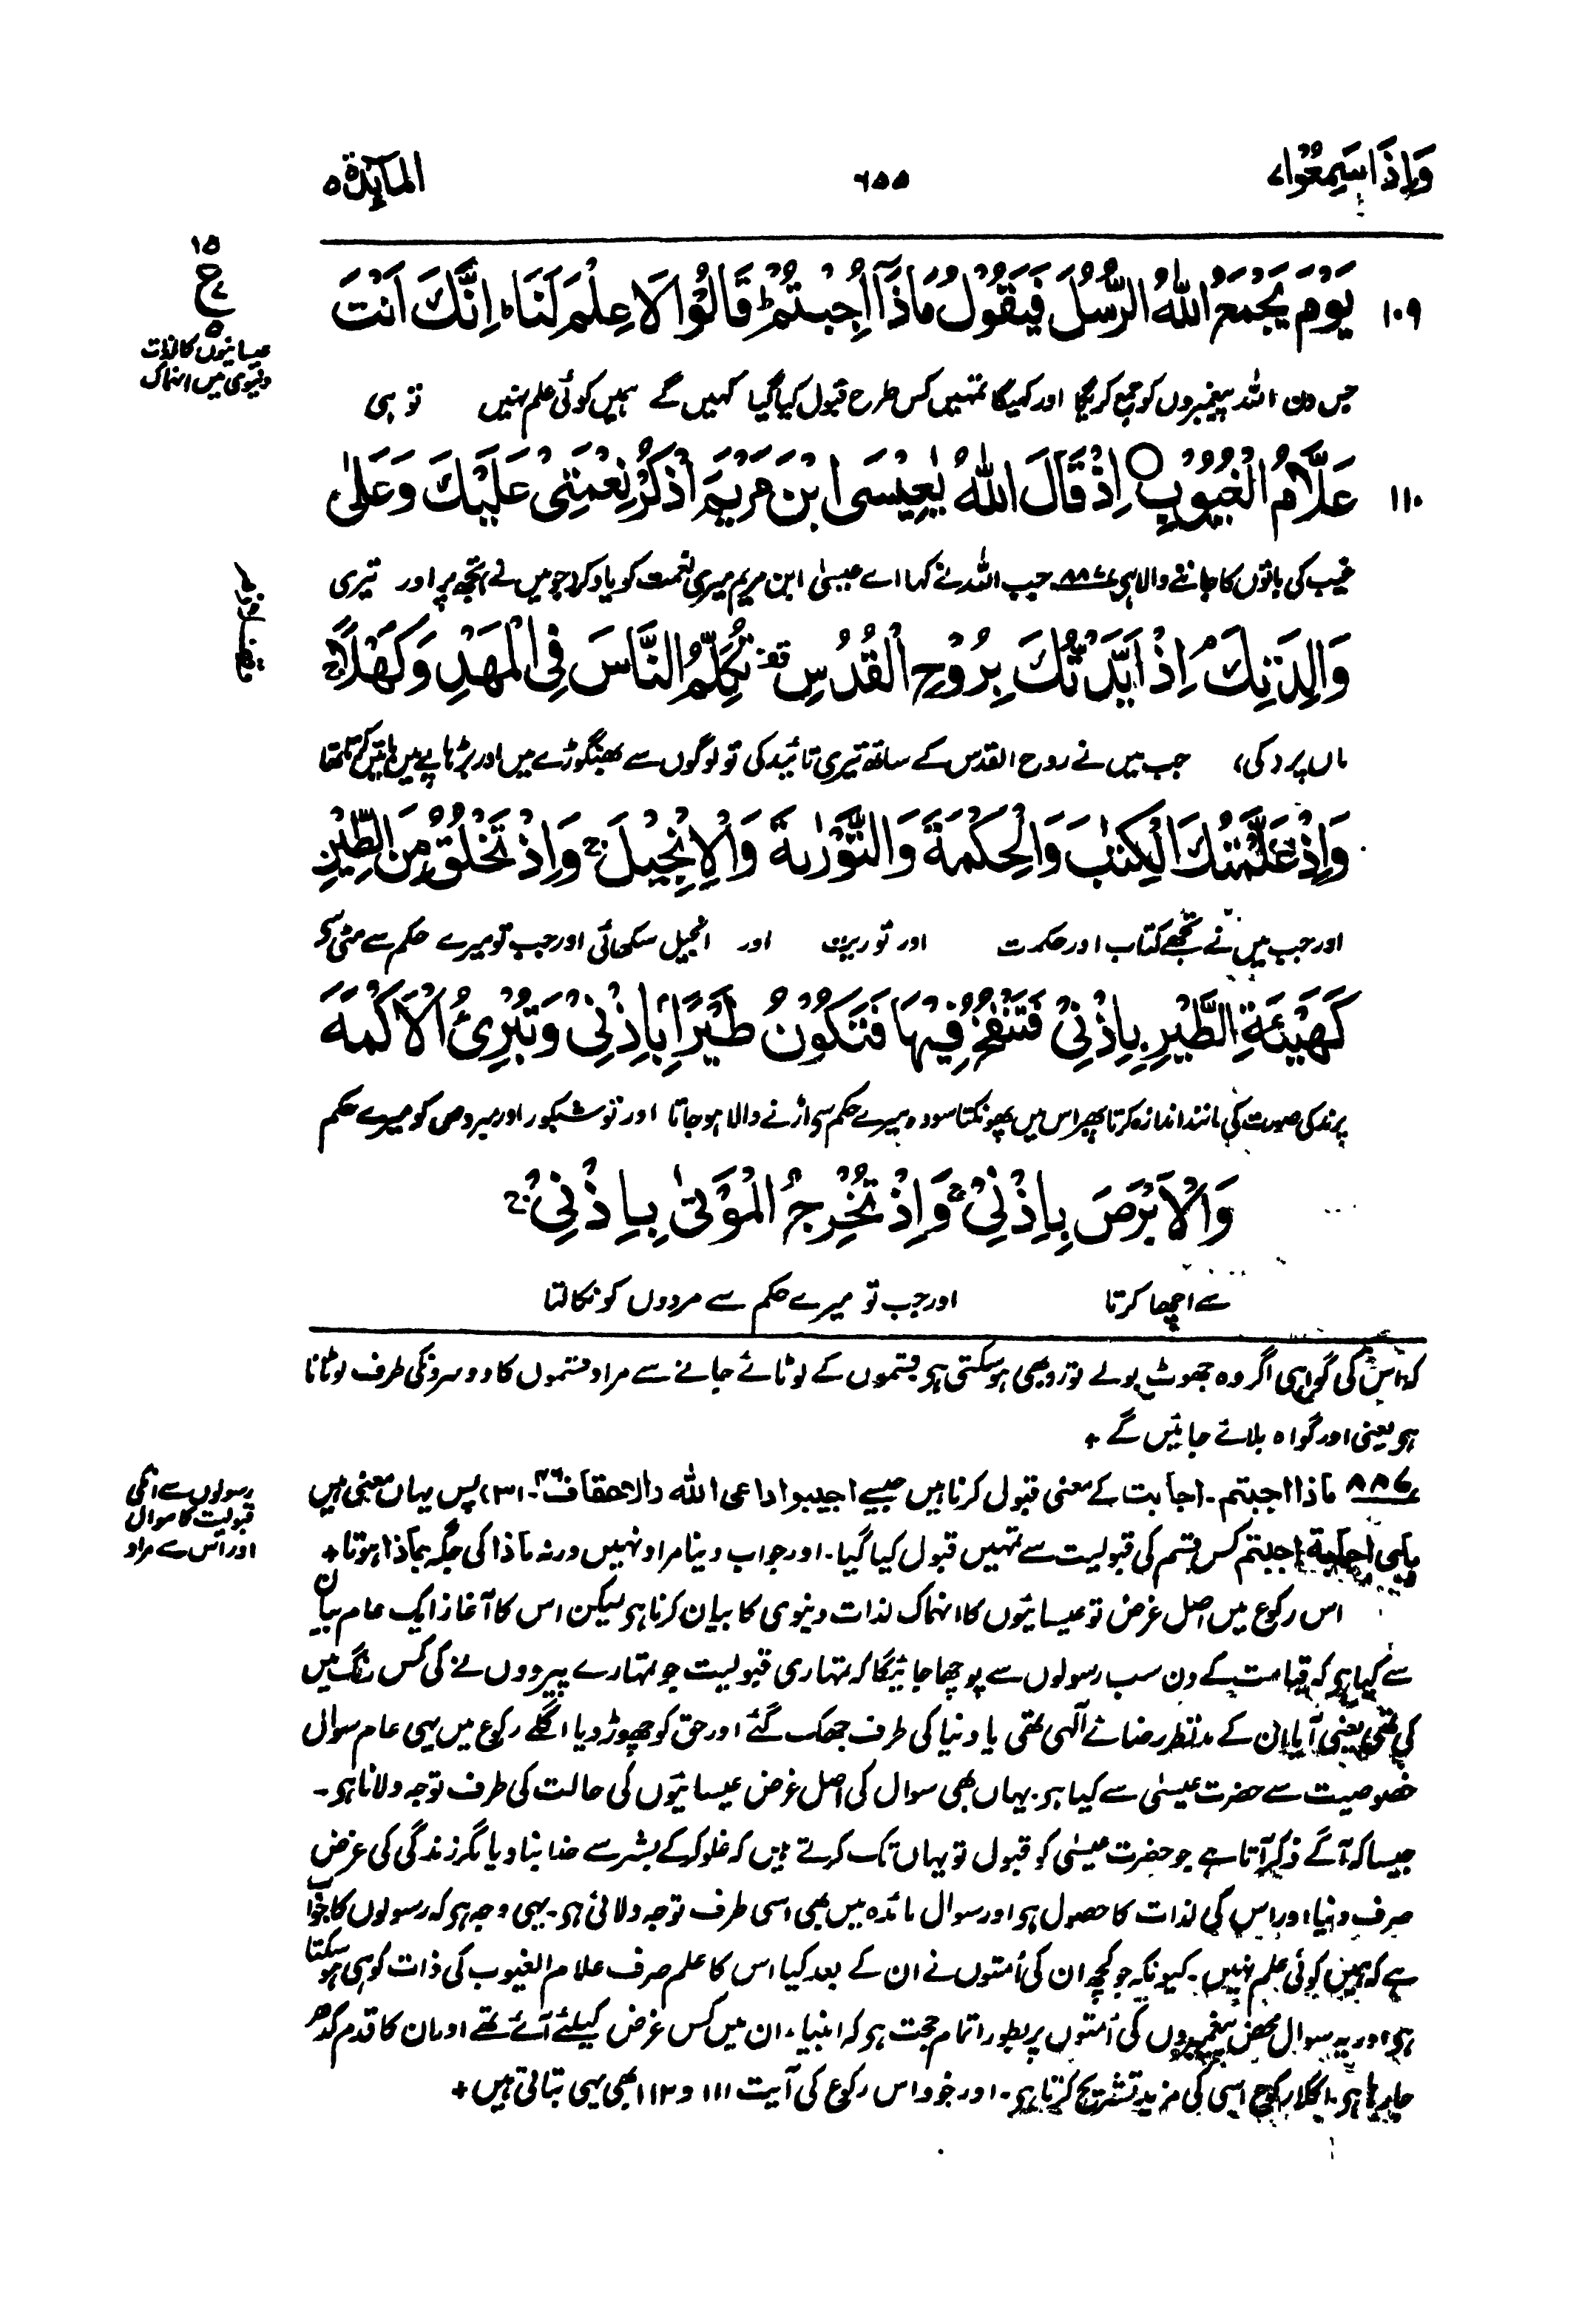 وَاِذَا سَمِعُوْا ٧
٦٥٥
المآئدة ٥
١٥
ع
٥
عیسائیوں کا لذات
دنیوی میں انہماک
١٠٩ يَوْمَ يَجْمَعُ اللّٰهُ الرُّسُلَ فَيَقُوْلُ مَاذَآ اُجِبْتُمْ ؕ قَالُوْا لَا عِلْمَ لَنَا ؕ اِنَّكَ اَنْتَ
جس دن اللہ پیغمبروں کو جمع کریگا اور کہیگا تمہیں کس طرح قبول کیا گیا کہیں گے ہمیں کوئی علم نہیں تو ہی
١١٠ عَلَّامُ الْغُيُوْبِ ○ اِذْ قَالَ اللّٰهُ يٰعِيْسَى ابْنَ مَرْيَمَ اذْكُرْ نِعْمَتِيْ عَلَيْكَ وَعَلٰى
غیب کی باتوں کا جاننے والا ہی ٨٨٦ جب اللہ نے کہا اے عیسیٰ ابن مریم میری نعمت کو یاد کر جو میں نے تجھ پر اور تیری
وَالِدَتِكَ ۘ اِذْ اَيَّدْتُّكَ بِرُوْحِ الْقُدُسِ ۟ تُكَلِّمُ النَّاسَ فِي الْمَهْدِ وَكَهْلًا ۚ
ماں پر کی، جب میں نے روح القدس کے ساتھ تیری تائید کی تو لوگوں سے بھنگوڑے میں اور بڑھاپے میں باتیں کرتا تھا
وَاِذْ عَلَّمْتُكَ الْكِتٰبَ وَالْحِكْمَةَ وَالتَّوْرٰىةَ وَالْاِنْجِيْلَ ۚ وَاِذْ تَخْلُقُ مِنَ الطِّيْنِ
اور جب میں نے تجھے کتاب اور حکمت اور توریت اور انجیل سکھائی اور جب تو میرے حکم سے مٹی سے
كَهَيْئَةِ الطَّيْرِ بِاِذْنِيْ فَتَنْفُخُ فِيْهَا فَتَكُوْنُ طَيْرًا بِاِذْنِيْ وَتُبْرِئُ الْاَكْمَهَ
پرند کی صورت کی مانند اندازہ کرتا پھر اس میں پھونکتا سو وہ میرے حکم سی اڑنے والا ہو جاتا اور تو شبکور اور مبروص کو میرے حکم
وَالْاَبْرَصَ بِاِذْنِيْ ۚ وَاِذْ تُخْرِجُ الْمَوْتٰى بِاِذْنِيْ ۚ
سے اچھا کرتا اور جب تو میرے حکم سے مردوں کو نکالتا
کہ اس کی گواہی اگر وہ جھوٹ بولے تو رد بھی ہو سکتی ہو قسموں کے لوٹائے جانے سے مراد قسموں کا دوسروں کی طرف لوٹانا
ہو یعنی اور گواہ بلائے جائیں گے +
رسولوں سے انکی
قبولیت کا سوال
اور اس سے مراد
٨٨٦ ماذا اجبتم۔ اجابت کے معنی قبول کرنا ہیں جیسے اجیبوا داعی اللہ (الاحقاف ٤٦۔ ٣١) پس یہاں معنی ہیں
بای اجابة اجبتم کس قسم کی قبولیت سے تمہیں قبول کیا گیا۔ اور جواب دینا مراد نہیں ورنہ ماذا کی جگہ بماذا ہوتا +
اس رکوع میں اصل غرض تو عیسائیوں کا انہماک لذات دنیوی کا بیان کرنا ہو لیکن اس کا آغاز ایک عام بیان
سے کیا ہو کہ قیامت کے دن سب رسولوں سے پوچھا جائیگا کہ تمہاری قبولیت جو تمہارے پیرووں نے کی کس رنگ میں
کی تھی یعنی آیا ان کے مدنظر رضائے الٰہی تھی یا دنیا کی طرف جھک گئے اور حق کو چھوڑ دیا اگلے رکوع میں یہی عام سوال
خصوصیت سے حضرت عیسیٰ سے کیا ہو۔ یہاں بھی سوال کی اصل غرض عیسائیوں کی حالت کی طرف توجہ دلانا ہو۔
جیسا کہ آگے ذکر آتا ہے جو حضرت عیسیٰ کو قبول تو یہاں تک کرتے ہیں کہ غلو کرکے بشر سے خدا بنا دیا مگر زندگی کی غرض
صرف دنیا اور اس کی لذات کا حصول ہو اور سوال مائدہ میں بھی اسی طرف توجہ دلائی ہو۔ یہی وجہ ہو کہ رسولوں کا جواب
ہے کہ ہمیں کوئی علم نہیں۔ کیونکہ جو کچھ ان کی اُمتوں نے ان کے بعد کیا اس کا علم صرف علام الغیوب کی ذات کو ہی ہو سکتا
ہو اور یہ سوال محض پیغمبروں کی اُمتوں پر بطور اتمام حجت ہو کہ انبیاء ان میں کس غرض کیلئے آئے تھے اور ان کا قدم کدھر
جا رہا ہو۔ اگلا رکوع اسی کی مزید تشریح کرتا ہو۔ اور خود اس رکوع کی آیت ١١١ و ١١٣ بھی یہی بتاتی ہیں +